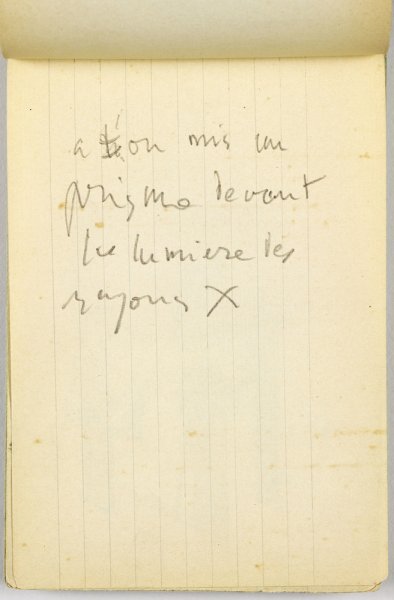 a t'on mis un
prisme devant
la lumiere des
rayons X